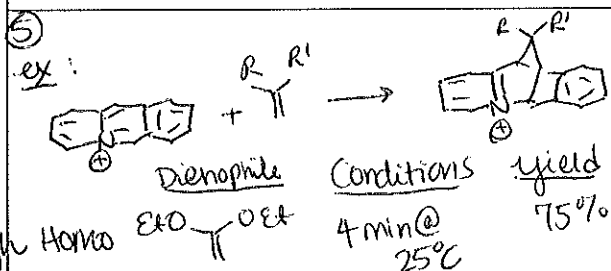 5
ex:
R R'
+
R R'
⊕ ⊕
Dienophile Conditions yield
Homo EtO OEt 4 min@ 75%
25°C